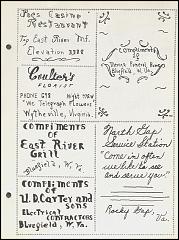 Pops Casino
Restaurant
Top East River Mt.
Elevation 3388
Coulter's
FLORIST
PHONE 678
"We Telegraph Flowers"
Wytheville, Virginia.
Compliments
OF
East River
Grill
Bluefield, W, Va.
Compliments
of
U.D. Cartey and
sons
Electrical
Contractors
Bluefield, W, Va.
Compliments
of
Funeral Home
Bluefield, W. Va.
North Gap
Service Station
"Come in often
we like to see
and serve you."
Rocky Gap,
Va.